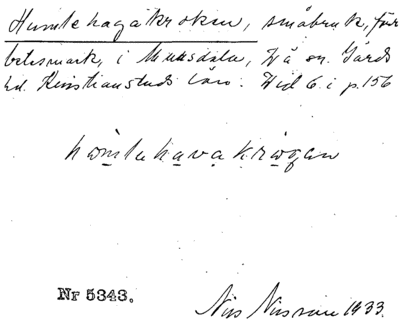 Humlehagakroken, småbruk, för
betesmark, i Mussdala, Två sn. Gärds
hd. Kristianstads län. Hed 6. i p. 156
Nr 5343.
Nils Nilsson 1933.